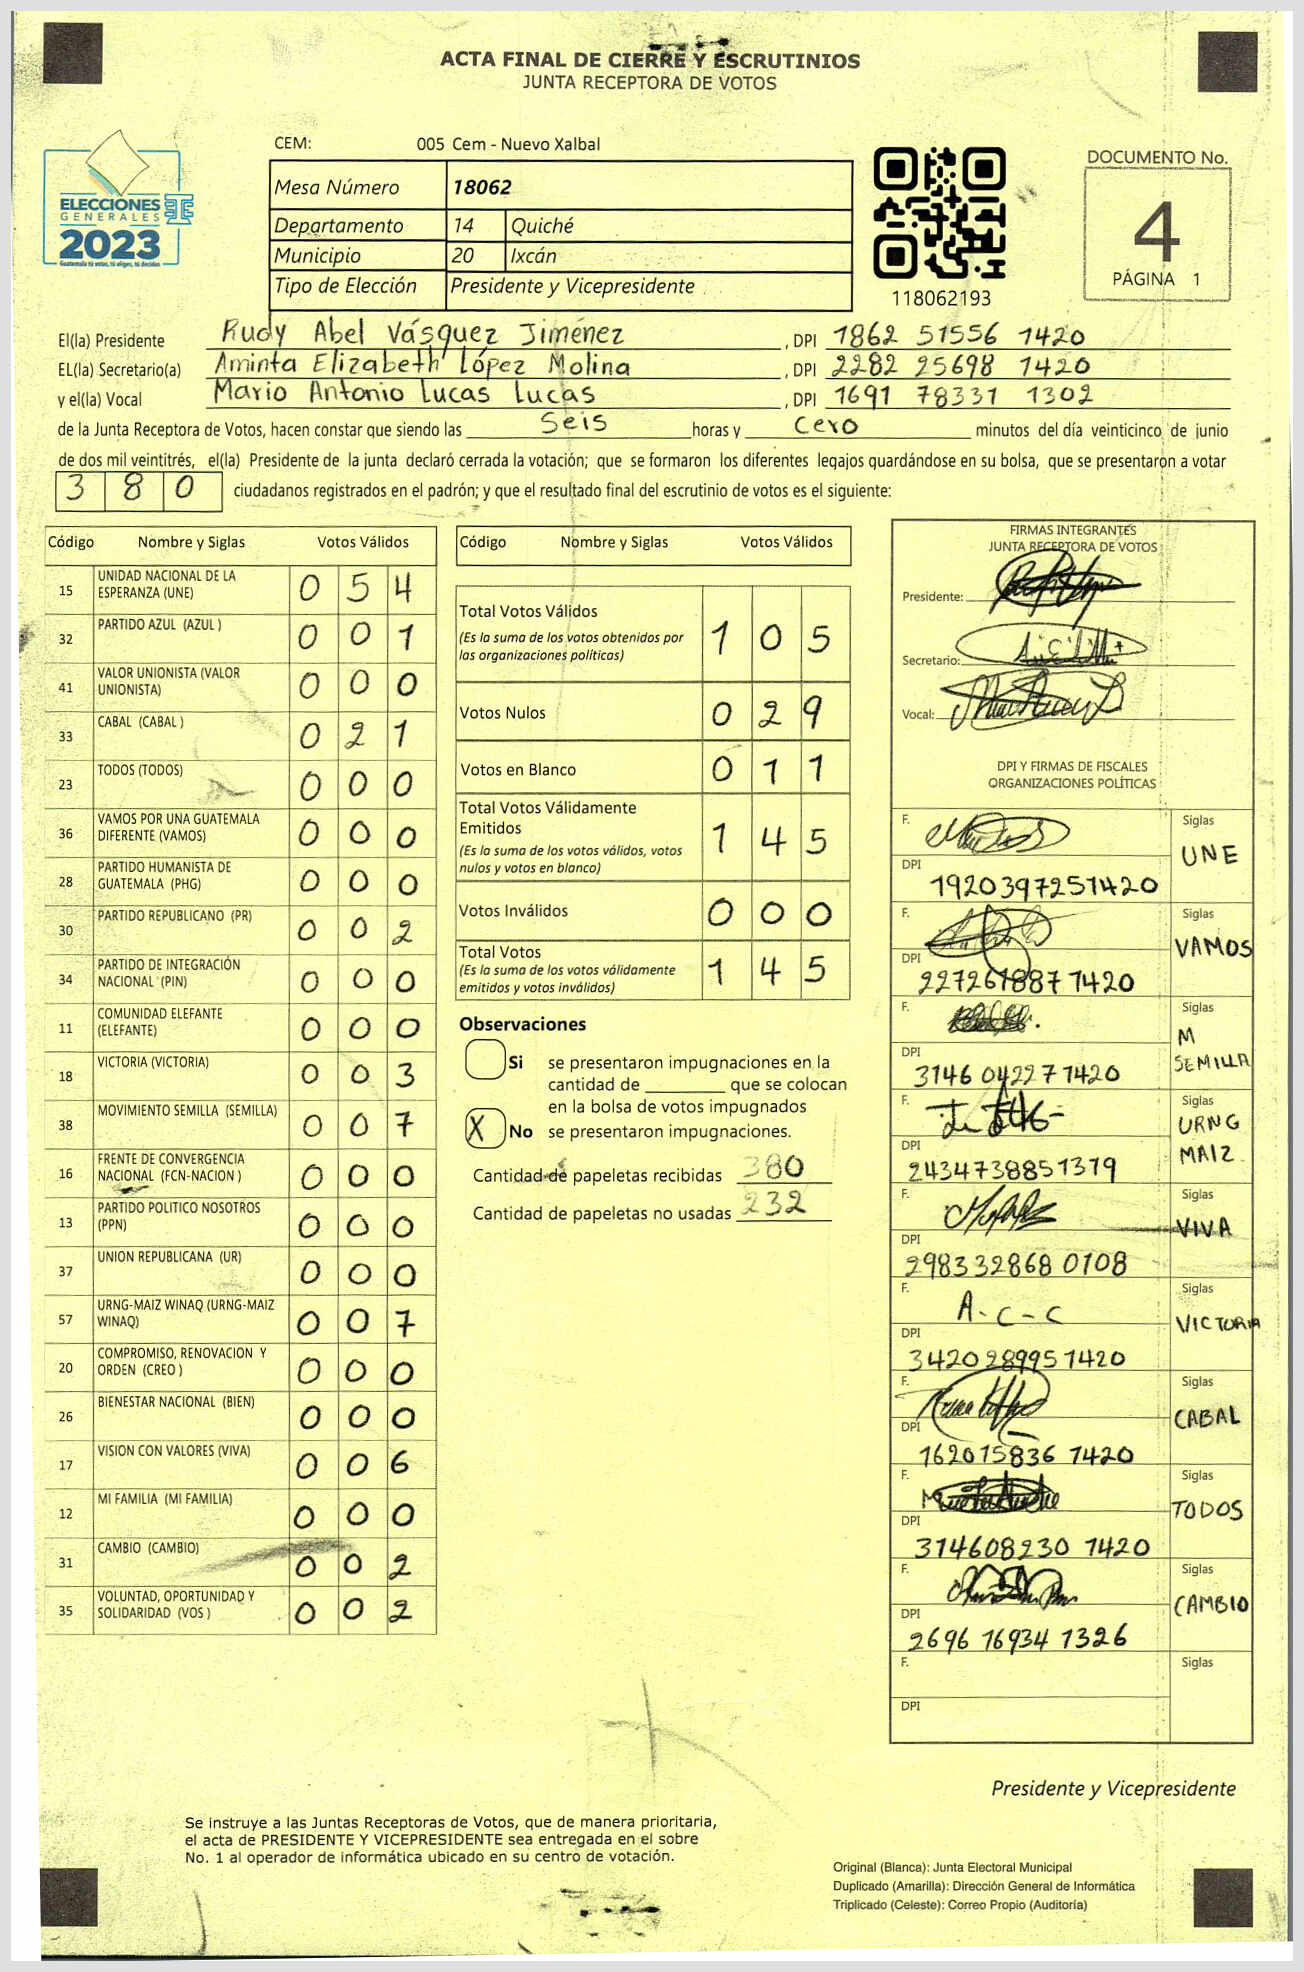 ACTA FINAL DE CIERRE Y ESCRUTINIOS
JUNTA RECEPTORA DE VOTOS
CEM: 005 Cem - Nuevo Xalbal
Mesa Número 18062
Departamento 14 Quiché
Municipio 20 Ixcán
Tipo de Elección Presidente y Vicepresidente
ELECCIONES
GENERALES
2023
Guatemala tú votas, tú eliges, tú decides
118062193
DOCUMENTO No.
4
PÁGINA 1
El(la) Presidente Rudy Abel Vásquez Jiménez , DPI 1862 51556 1420
EL(la) Secretario(a) Aminta Elizabeth López Molina , DPI 2282 25698 1420
y el(la) Vocal Mario Antonio Lucas Lucas , DPI 1691 78331 1302
de la Junta Receptora de Votos, hacen constar que siendo las Seis horas y Cero minutos del día veinticinco de junio
de dos mil veintitrés, el(la) Presidente de la junta declaró cerrada la votación; que se formaron los diferentes legajos guardándose en su bolsa, que se presentaron a votar
3 8 0 ciudadanos registrados en el padrón; y que el resultado final del escrutinio de votos es el siguiente:
Código Nombre y Siglas Votos Válidos
15 UNIDAD NACIONAL DE LA
ESPERANZA (UNE) 0 5 4
32 PARTIDO AZUL (AZUL ) 0 0 1
41 VALOR UNIONISTA (VALOR
UNIONISTA) 0 0 0
33 CABAL (CABAL ) 0 2 1
23 TODOS (TODOS) 0 0 0
36 VAMOS POR UNA GUATEMALA
DIFERENTE (VAMOS) 0 0 0
28 PARTIDO HUMANISTA DE
GUATEMALA (PHG) 0 0 0
30 PARTIDO REPUBLICANO (PR) 0 0 2
34 PARTIDO DE INTEGRACIÓN
NACIONAL (PIN) 0 0 0
11 COMUNIDAD ELEFANTE
(ELEFANTE) 0 0 0
18 VICTORIA (VICTORIA) 0 0 3
38 MOVIMIENTO SEMILLA (SEMILLA) 0 0 7
16 FRENTE DE CONVERGENCIA
NACIONAL (FCN-NACION ) 0 0 0
13 PARTIDO POLITICO NOSOTROS
(PPN) 0 0 0
37 UNION REPUBLICANA (UR) 0 0 0
57 URNG-MAIZ WINAQ (URNG-MAIZ
WINAQ) 0 0 7
20 COMPROMISO, RENOVACION Y
ORDEN (CREO ) 0 0 0
26 BIENESTAR NACIONAL (BIEN) 0 0 0
17 VISION CON VALORES (VIVA) 0 0 6
12 MI FAMILIA (MI FAMILIA) 0 0 0
31 CAMBIO (CAMBIO) 0 0 2
35 VOLUNTAD, OPORTUNIDAD Y
SOLIDARIDAD (VOS ) 0 0 2
Código Nombre y Siglas Votos Válidos
Total Votos Válidos
(Es la suma de los votos obtenidos por
las organizaciones políticas) 1 0 5
Votos Nulos 0 2 9
Votos en Blanco 0 1 1
Total Votos Válidamente
Emitidos
(Es la suma de los votos válidos, votos
nulos y votos en blanco) 1 4 5
Votos Inválidos 0 0 0
Total Votos
(Es la suma de los votos válidamente
emitidos y votos inválidos) 1 4 5
Observaciones
Si se presentaron impugnaciones en la
cantidad de que se colocan
en la bolsa de votos impugnados
X No se presentaron impugnaciones.
Cantidad de papeletas recibidas 380
Cantidad de papeletas no usadas 232
FIRMAS INTEGRANTES
JUNTA RECEPTORA DE VOTOS
Presidente:
Secretario:
Vocal:
DPI Y FIRMAS DE FISCALES
ORGANIZACIONES POLÍTICAS
F. Siglas
UNE
DPI 1920397251420
F. Siglas
VAMOS
DPI 2272618871420
F. Siglas
M
SEMILLA
DPI 3146 042271420
F. Siglas
URNG
MAIZ
DPI 2434738851319
F. Siglas
VIVA
DPI 298332868 0108
F. A-C-C Siglas
VICTORIA
DPI 3420289951420
F. Siglas
CABAL
DPI 162015836 1420
F. Siglas
TODOS
DPI 314608230 1420
F. Siglas
CAMBIO
DPI 2696 16934 1326
F. Siglas
DPI
Presidente y Vicepresidente
Se instruye a las Juntas Receptoras de Votos, que de manera prioritaria,
el acta de PRESIDENTE Y VICEPRESIDENTE sea entregada en el sobre
No. 1 al operador de informática ubicado en su centro de votación.
Original (Blanca): Junta Electoral Municipal
Duplicado (Amarilla): Dirección General de Informática
Triplicado (Celeste): Correo Propio (Auditoría)